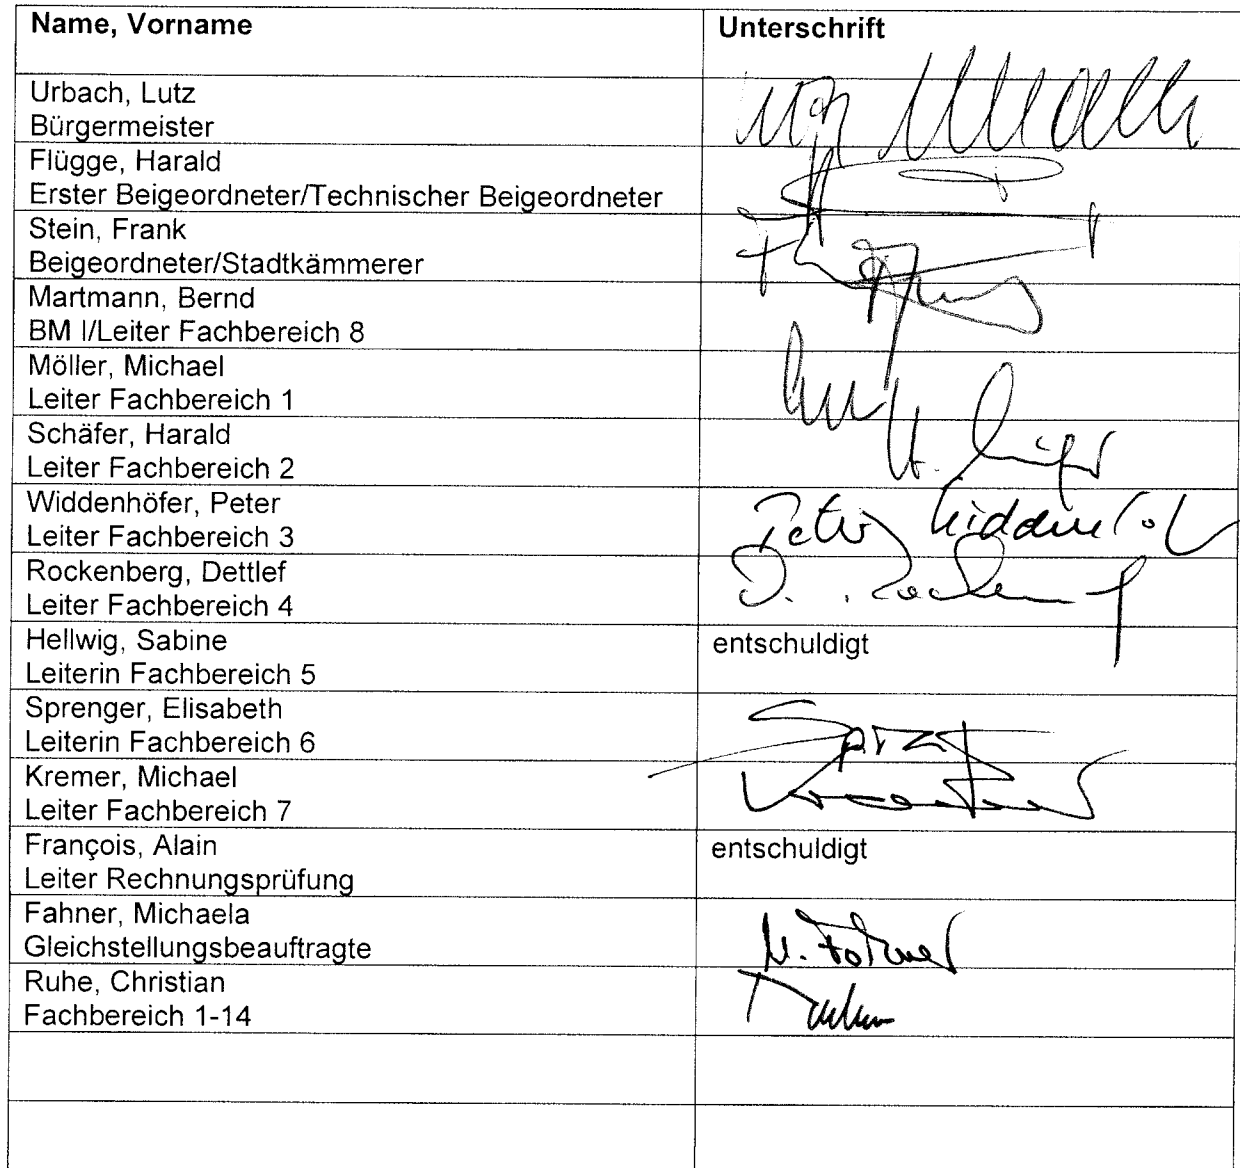 Name, Vorname Unterschrift
Urbach, Lutz
Bürgermeister
Flügge, Harald
Erster Beigeordneter/Technischer Beigeordneter
Stein, Frank
Beigeordneter/Stadtkämmerer
Martmann, Bernd
BM I/Leiter Fachbereich 8
Möller, Michael
Leiter Fachbereich 1
Schäfer, Harald
Leiter Fachbereich 2
Widdenhöfer, Peter
Leiter Fachbereich 3
Rockenberg, Dettlef
Leiter Fachbereich 4
Hellwig, Sabine entschuldigt
Leiterin Fachbereich 5
Sprenger, Elisabeth
Leiterin Fachbereich 6
Kremer, Michael
Leiter Fachbereich 7
François, Alain entschuldigt
Leiter Rechnungsprüfung
Fahner, Michaela
Gleichstellungsbeauftragte
Ruhe, Christian
Fachbereich 1-14